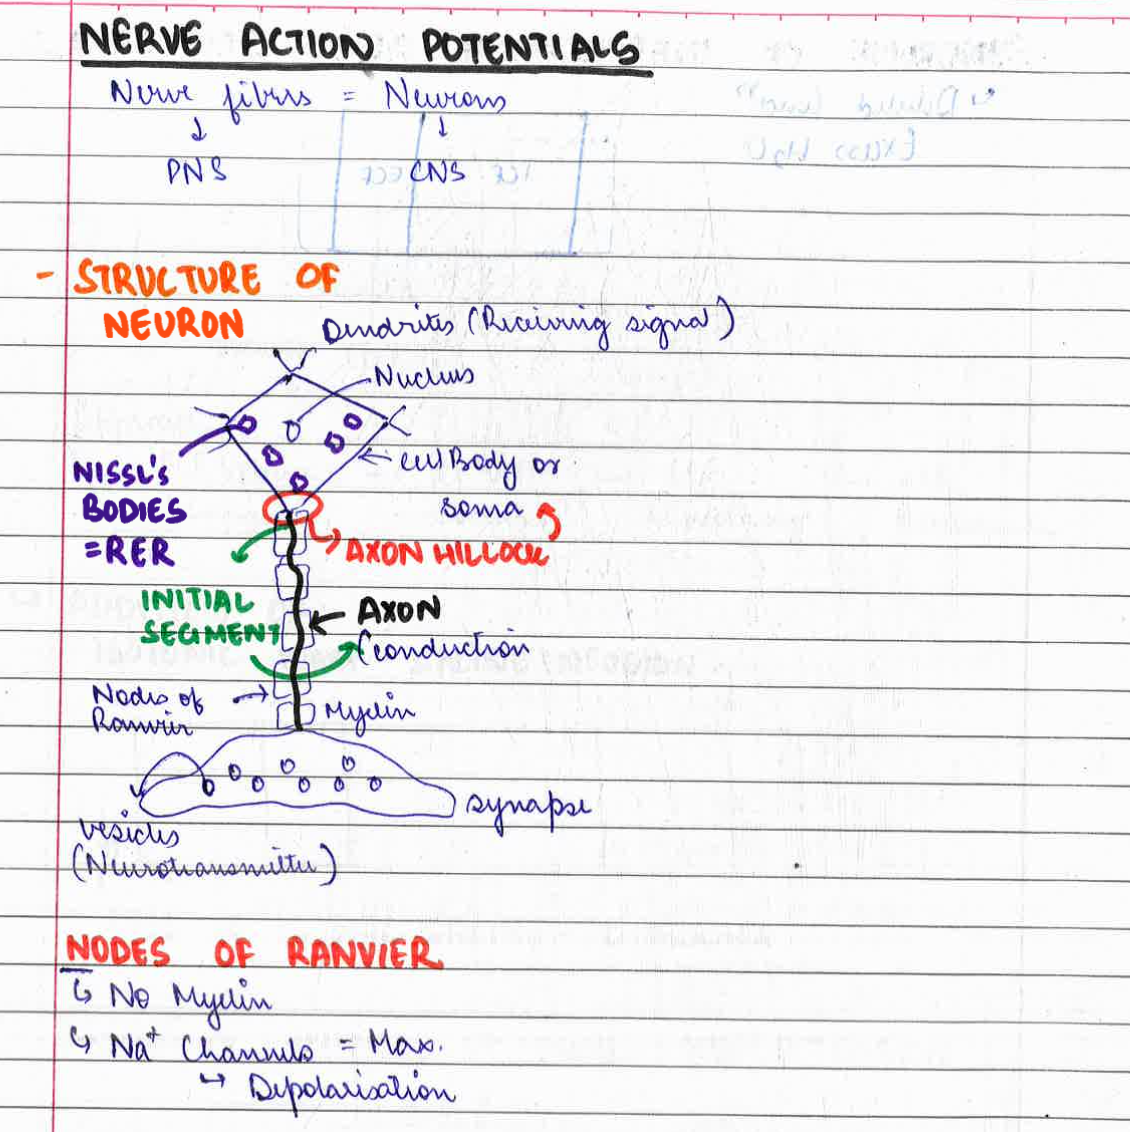 NERVE ACTION POTENTIALS
Nerve fibres = Neurons
↓ ↓
PNS CNS
- STRUCTURE OF
NEURON
Dendrites (Receiving signal)
Nucleus
Cell Body or
soma
NISSL'S
BODIES
=RER
AXON HILLOCK
INITIAL
SEGMENT
AXON
(conduction
Nodes of
Ranvier
Myelin
synapse
vesicles
(Neurotransmitter)
NODES OF RANVIER
↳ No Myelin
↳ Na⁺ Channels = Max.
↪ Depolarisation